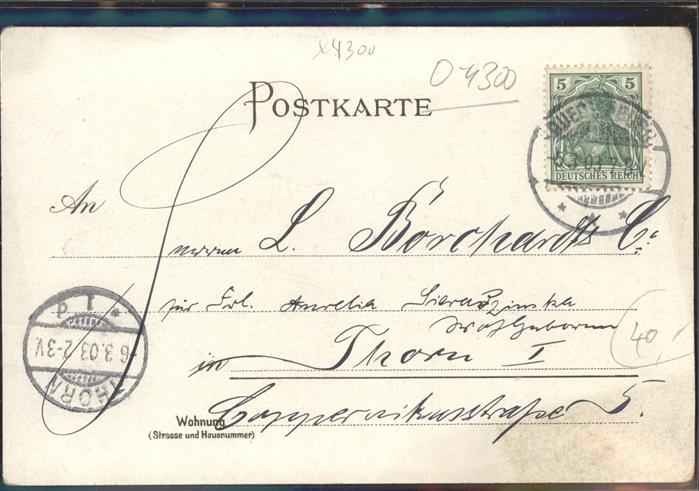 x4300
O 4300
POSTKARTE
5 5
DEUTSCHES REICH
5.3.03. 7
An
Herren L. Borchardt & Co.
für Frl. Aurelia
Wohlgeboren
40,
in Thorn I
Coppernikusstraße 5.
Wohnung
(Strasse und Hausnummer)
* 1 d
6.3.03. 2-3V.
THORN